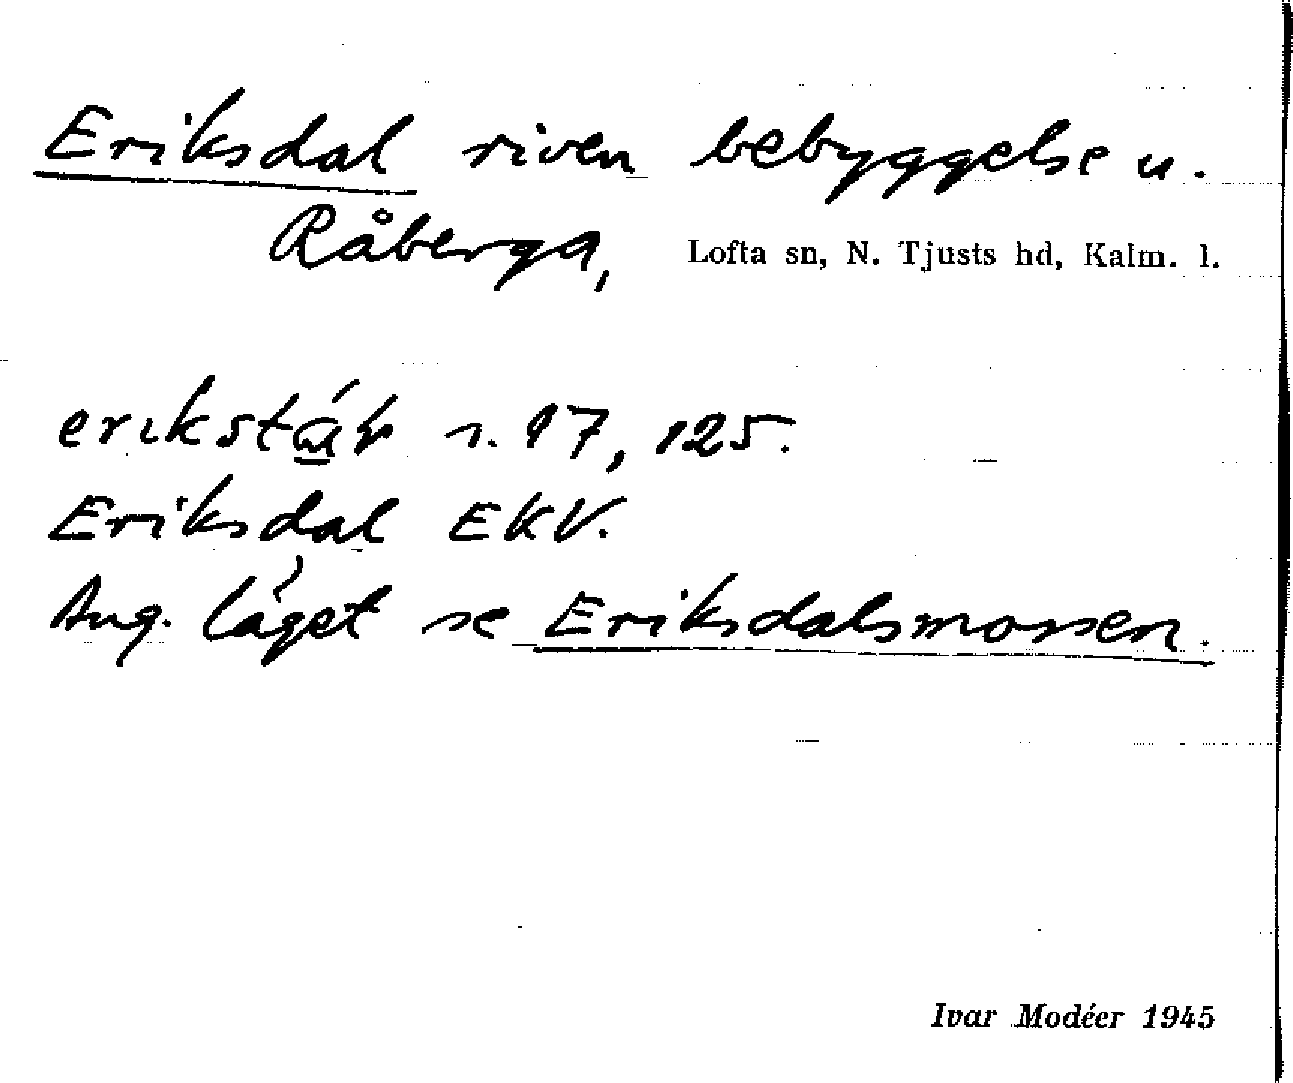 Eriksdal riven bebyggelse u.
Råberga, Lofta sn, N. Tjusts hd, Kalm. l.
s. 97, 125.
Eriksdal EKV.
Ang. läget se Eriksdalsmossen.
Ivar Modéer 1945